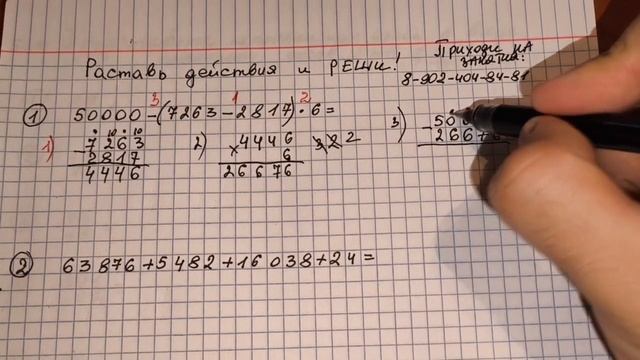 Расставь действия и РЕШИ!
Приходи НА
ЗАНЯТИЯ:
8-902-404-94-81
3 1 2
① 50000-(7263-2817)·6=
1) 7263
-2817
4446
2) 4446
×6
26676
322
3) -50
2667
② 63876+5482+16038+24=